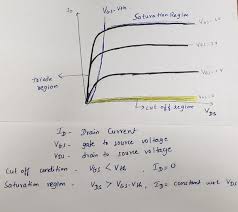 ID
VGS-Vth
Saturation Region
Triode
region
cut off region
VDS
ID - Drain Current
VGS - gate to source voltage
VDS - drain to source voltage
Cut off condition - VGS < Vth, ID=0
Saturation region - VDS > VGS-Vth, ID = constant wrt VDS